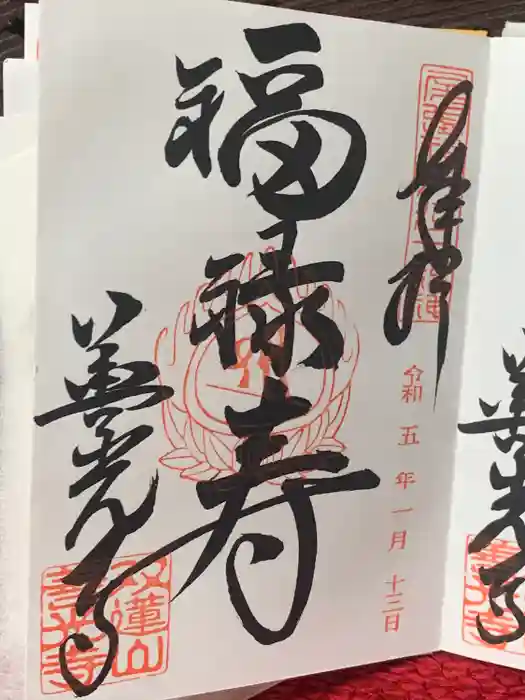 奉拝
令和五年一月十三日
福禄寿
善光寺
双蓮山
善光寺
善光寺
善光寺